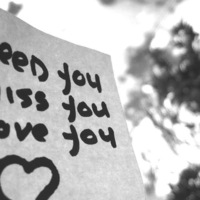 eeD you
iss you
ove you